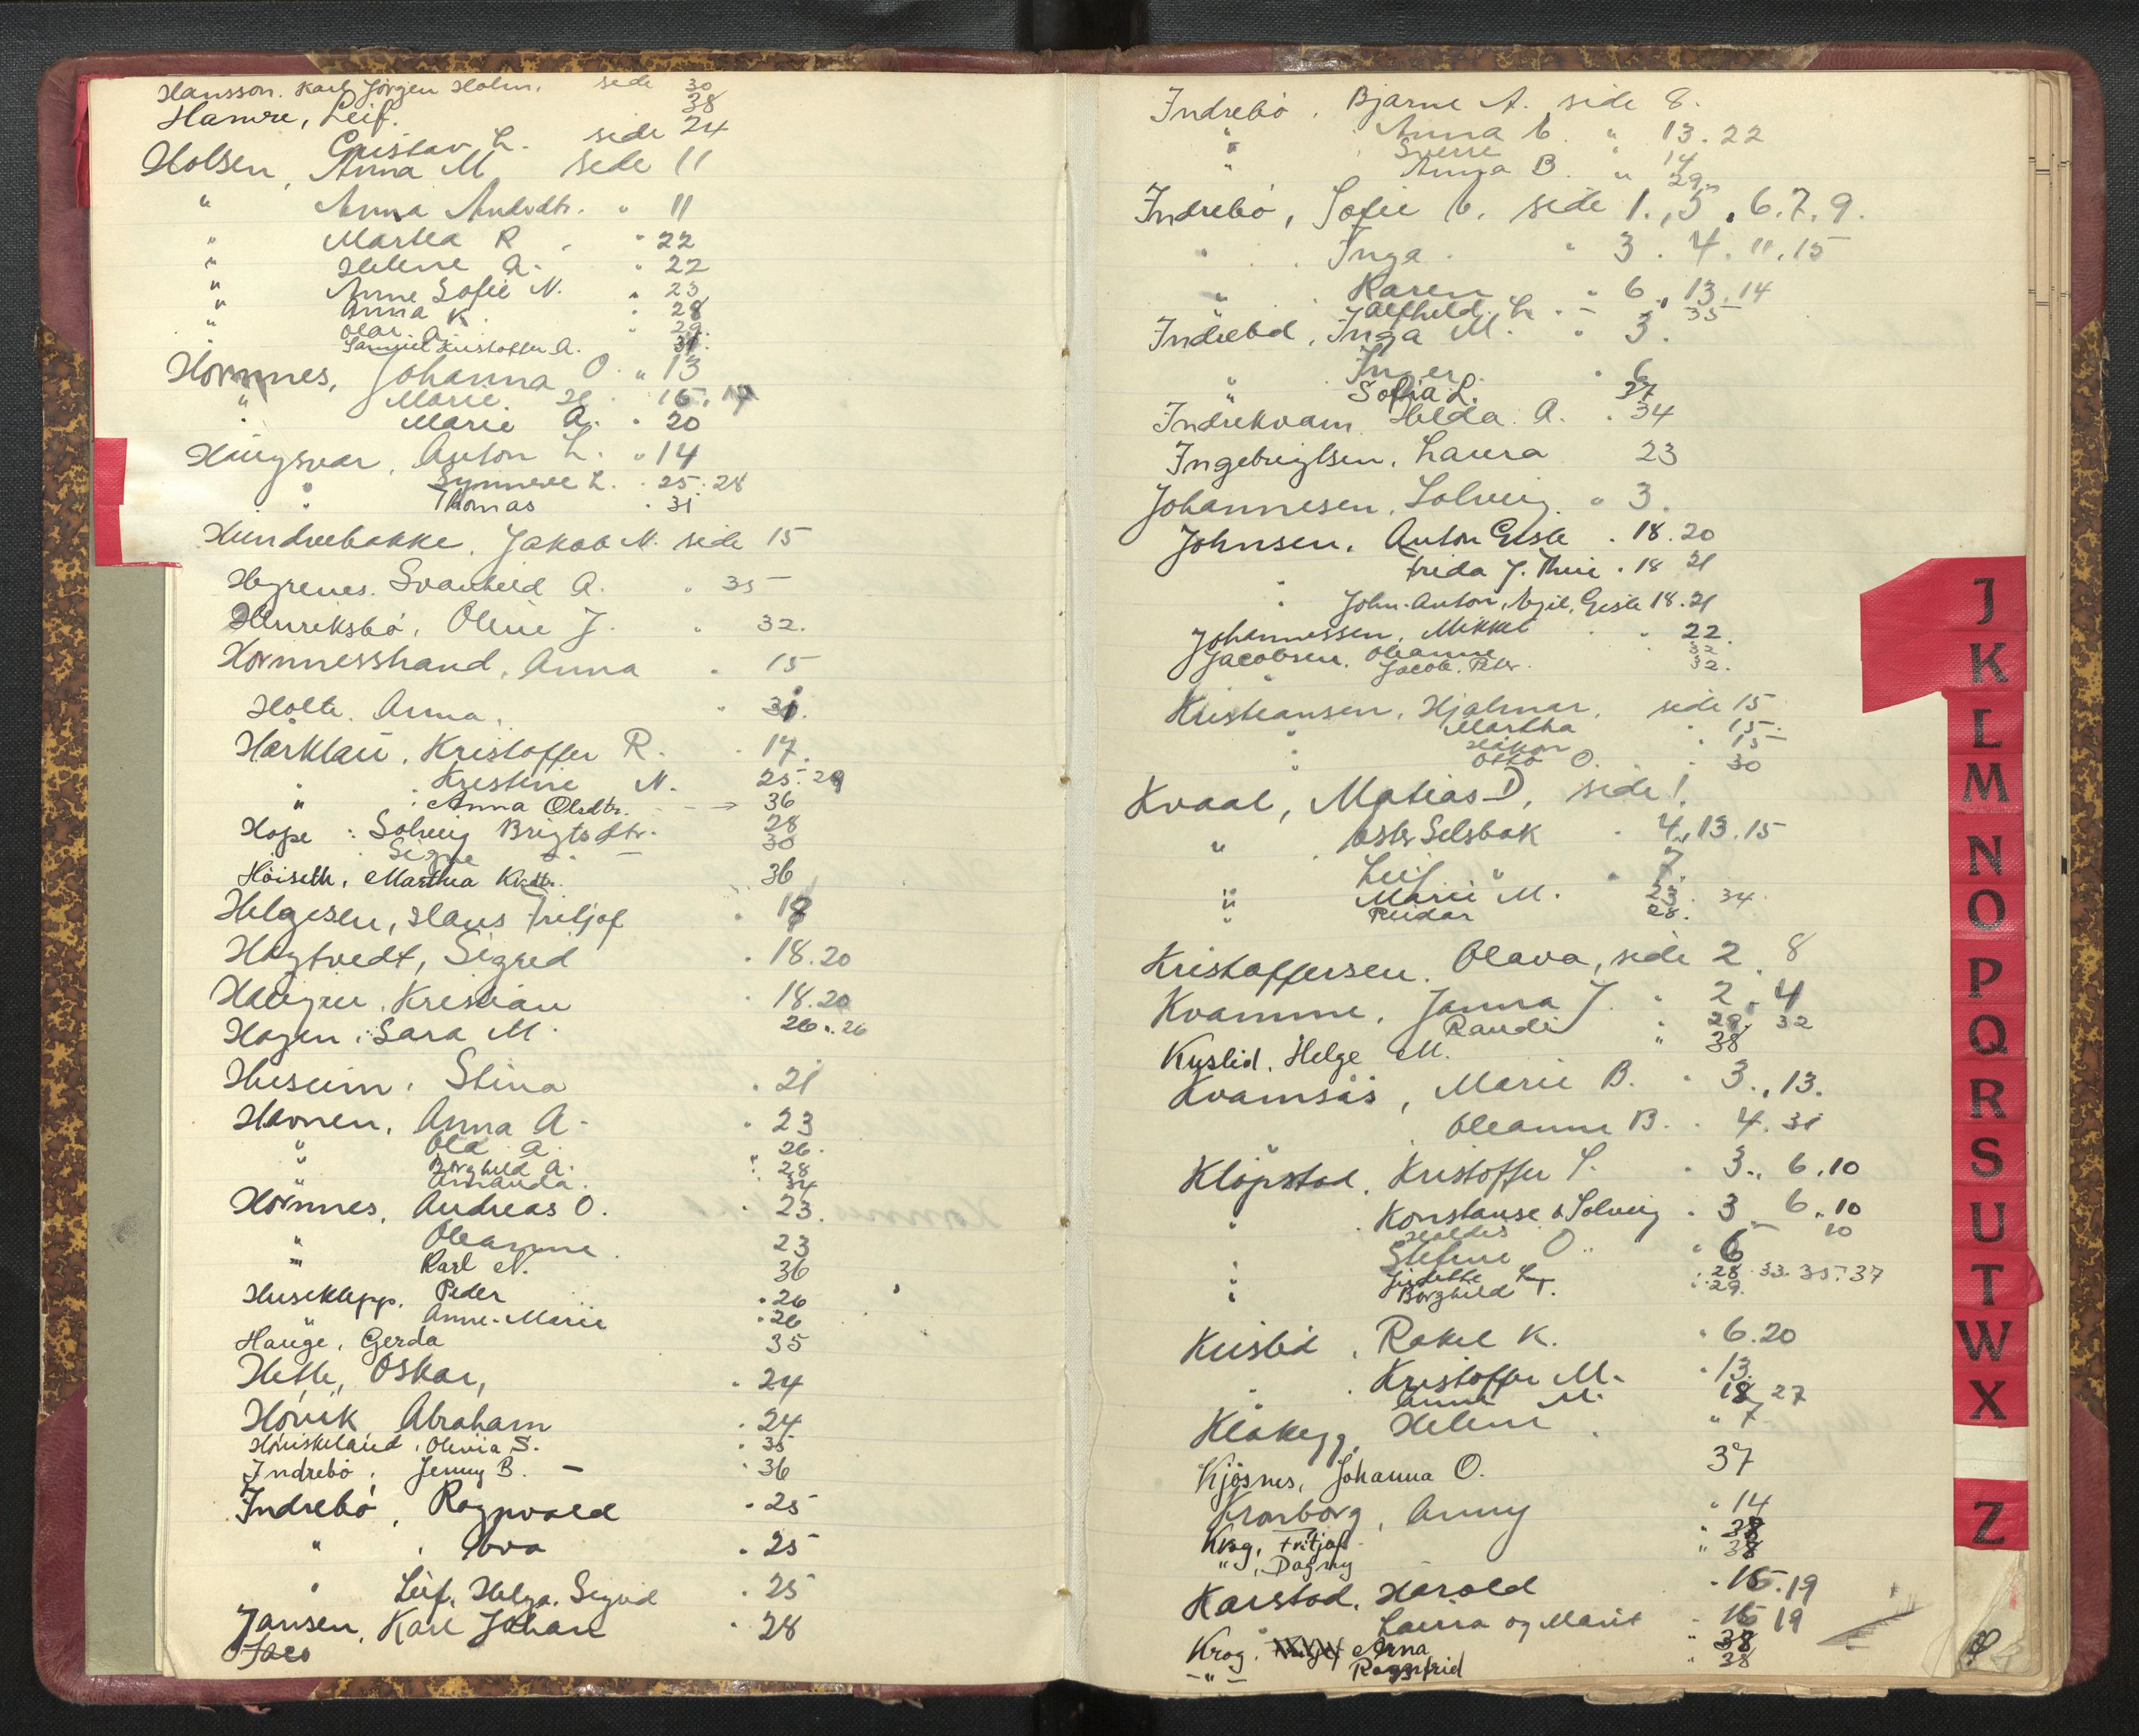 Hansson. Karl Jörgen Holm. side 30
Hamre, Leif. 38
Gustav L. side 24
Holsen, Anna M side 11
" Anna Andrdtr. " 11
" Martha R. " 22
" Helene A. " 22
" Anne Sofie N. " 23
" Anna K " 28
" Olav. A. " 29.
Samuel Kristoffer A. 31.
Hornnes, Johanna O. " 13
" Marie. H. 16.
" Marie A. " 20
Haugsvær, Anton L. " 14
Synneve L. " 25. 28
" Thomas " 31
Hundvebakke, Jakob M. side 15
Høyrenes. Svanheid A. " 35
Henriksbö, Oline J. " 32.
Hornnesstrand, Anna " 15
Holte. Anna, " 31.
Hårklau, Kristoffer R. " 17.
" Kristine N. 25. 29
" Anna Olsdtr. - - → 36
Hope : Solveig Brigtsdtr. 28
" Signe - - 30
Höiseth, Martha Krdtr. 36
Helgesen, Hans Fritjof " 18
Høgtvedt, Sigrid " 18.20
Haugen, Kristian " 18.20
Hagen, Sara M. 26. 26
Huseim, Stina " 21
Havnen, Anna A. " 23
" Ola A. " 26.
" Borghild A. " 28
" Amanda. 34
Hornnes, Andreas O. " 23.
" Oleanna. 23
" Karl N. 36
Huseklepp, Peder " 26
" Anne-Marie " 26
Hauge, Gerda 35
Hetle, Oskar, " 24
Hövik Abraham " 24
Hönskeland, Olivia S. " 35
Indrebö, Jenny B. - " 36
Indrebö, Ragnvald " 25
" Ova " 25
" Leif, Helga, Sigrid " 25
Jansen, Karl Johan " 28
Jaco
Indrebö, Bjarne A. side 8.
" Anna E. " 13. 22
" Sverre " 14
" Anna B. " 29.
Indrebö, Sofie E. side 1., 5, 6.7.9.
" Inga " 3. 4. 11. 15
" Karen " 6, 13. 14
" Alfhild. L. - 35
Indrebö, Inga M. " 3.
Inger. " 6
" Sofia L. 27
Indrekvam Helda. A. " 34
Ingebrigtsen, Laura 23
Johannesen, Solveig. " 3.
Johnsen, Anton Gisle " 18.20
Frida J. Thue " 18 21
" John. Anton, Egil, Gisle 18.21
Johannessen, Mikkel " 22.
Jacobsen, Oleanne " 32
" Jacob. Peter. 32.
Kristiansen, Hjalmar, side 15
" Martha " 15.
Håkon " 15
" Otto O. " 30
Kvaal, Matias D, side 1.
" Ester Selsbak " 4, 13. 15
Leif " " 7.
" Marie M. 23. 34.
" Reidar 28.
Kristoffersen, Olava, side 2. 8
Kvamme, Janna J. " 2, 4
Randi " 29. 32
Kyslid, Helge M. " 38
Kvamsås, Marie B. " 3., 13.
Oleanne B. " 4. 31
Klöpstad, Kristoffer T. " 3., 6, 10
" Konstanse & Solveig " 3. 6, 10
Haldis 10
" Stefine O. " 6
" Lisdethe L. " 28. 33. 35. 37
" Borghild T. " 29.
Kuslid, Rakel K. " 6.20
" Kristoffer M. " 13.
Anna M. 18 27
Klakegg, Helene " 7
Kjösnes, Johanna O. 37
Kronborg, Anny " 14
Krog, Fritjof " 38
" , Dagny " 38
Karstad, Harald " 15.19
" Laura og Marit " 15 19
Krog. Arna " 38
- " - Ragnfrid " 38
J
K
L
M
N
O
P
Q
R
S
U
T
W
X
Z